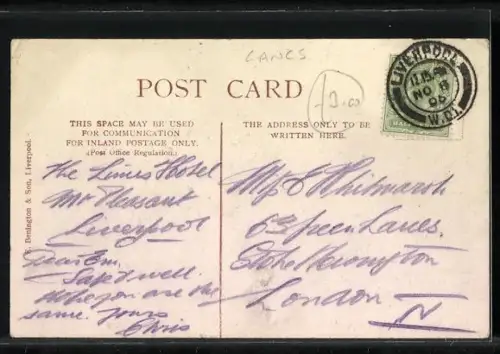 LANCS
POST CARD
£3.00
LIVERPOOL
11.15 AM
NO 8
06
W.O.1.
THIS SPACE MAY BE USED
FOR COMMUNICATION
FOR INLAND POSTAGE ONLY.
(Post Office Regulation.)
THE ADDRESS ONLY TO BE
WRITTEN HERE.
Benington & Son, Liverpool.
The Limes Hotel
Mt Pleasant
Liverpool
Dear Em.
Safe & well.
Hope you are the
same. yours
Chris
E Whitmarsh
Green Lanes.
Stoke Newington
London
N